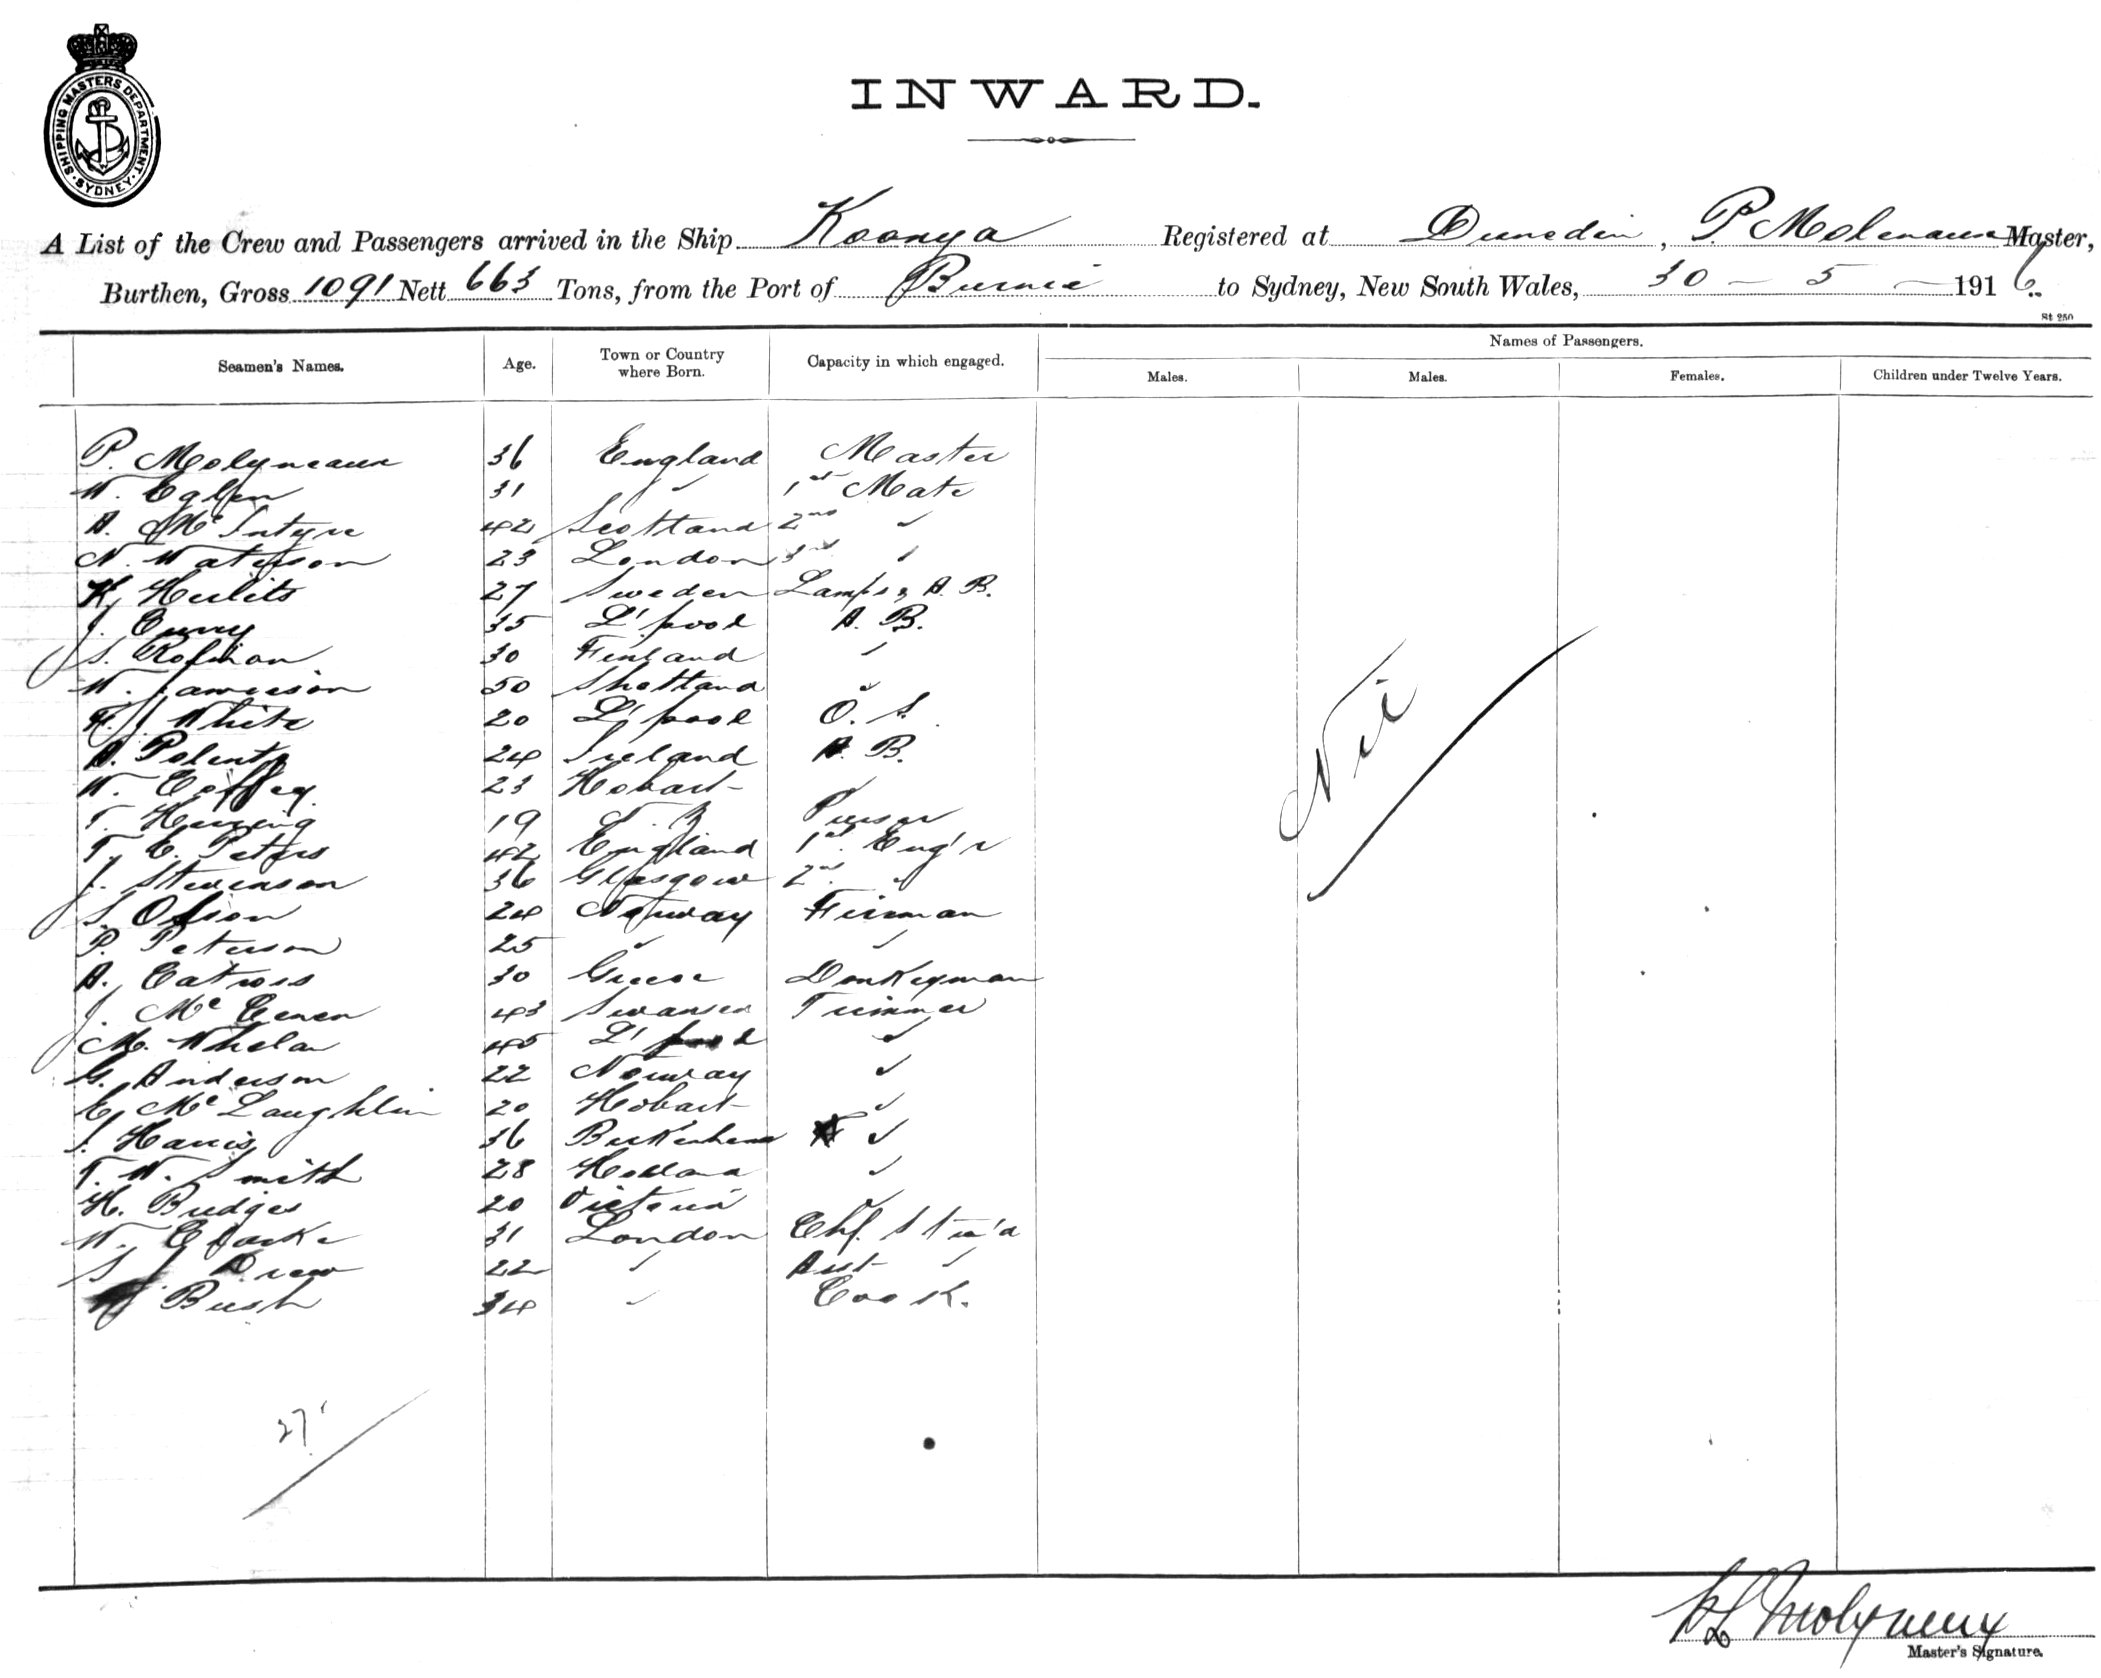 SHIPPING MASTERS DEPARTMENT. SYDNEY.
INWARD.
A List of the Crew and Passengers arrived in the Ship Koonya Registered at Dunedin, P. Molenaux Master,
Burthen, Gross 1091 Nett 663 Tons, from the Port of Burnie to Sydney, New South Wales, 30 - 5 - 1916.
St 250
Names of Passengers.
Seamen's Names. Age. Town or Country where Born. Capacity in which engaged. Males. Males. Females. Children under Twelve Years.
P. Molyneaux 36 England Master
W. 31 " 1st Mate
A. McIntyre 42 Scotland 2nd "
N. Waterson 23 London 3rd "
K. 27 Sweden Lamps & A. B.
J. 35 L'pool A. B.
S. 30 Finland "
W. Jamieson 50 Shetland "
F. J. White 20 L'pool O. S.
A. 24 Ireland A. B.
W. Coffey 23 Hobart "
T. 19 N. Z Purser
T. C. Peters 42 England 1st Eng'r
J. Stevenson 36 Glasgow 2nd "
S. Olsson 24 Norway Fireman
P. Peterson 25 " "
A. Catross 30 Greece Donkeyman
J. Mc 43 Swansea Trimmer
M. Whelan 45 L'pool "
G. Anderson 22 Norway "
E. McLaughlin 20 Hobart "
J. Harris 36 Birkenhead "
T. W. Smith 28 Holland "
H. Bridges 20 Victoria "
W. Clarke 31 London Chf. Stw'd
S J Drew 22 " Asst "
Bush 34 " Cook.
Nil
27
Molyneux
Master's Signature.